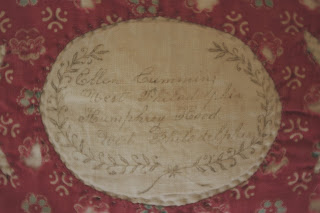 Ellen Cumming
West Philadelphia
Humphrey Hood
West Philadelphia